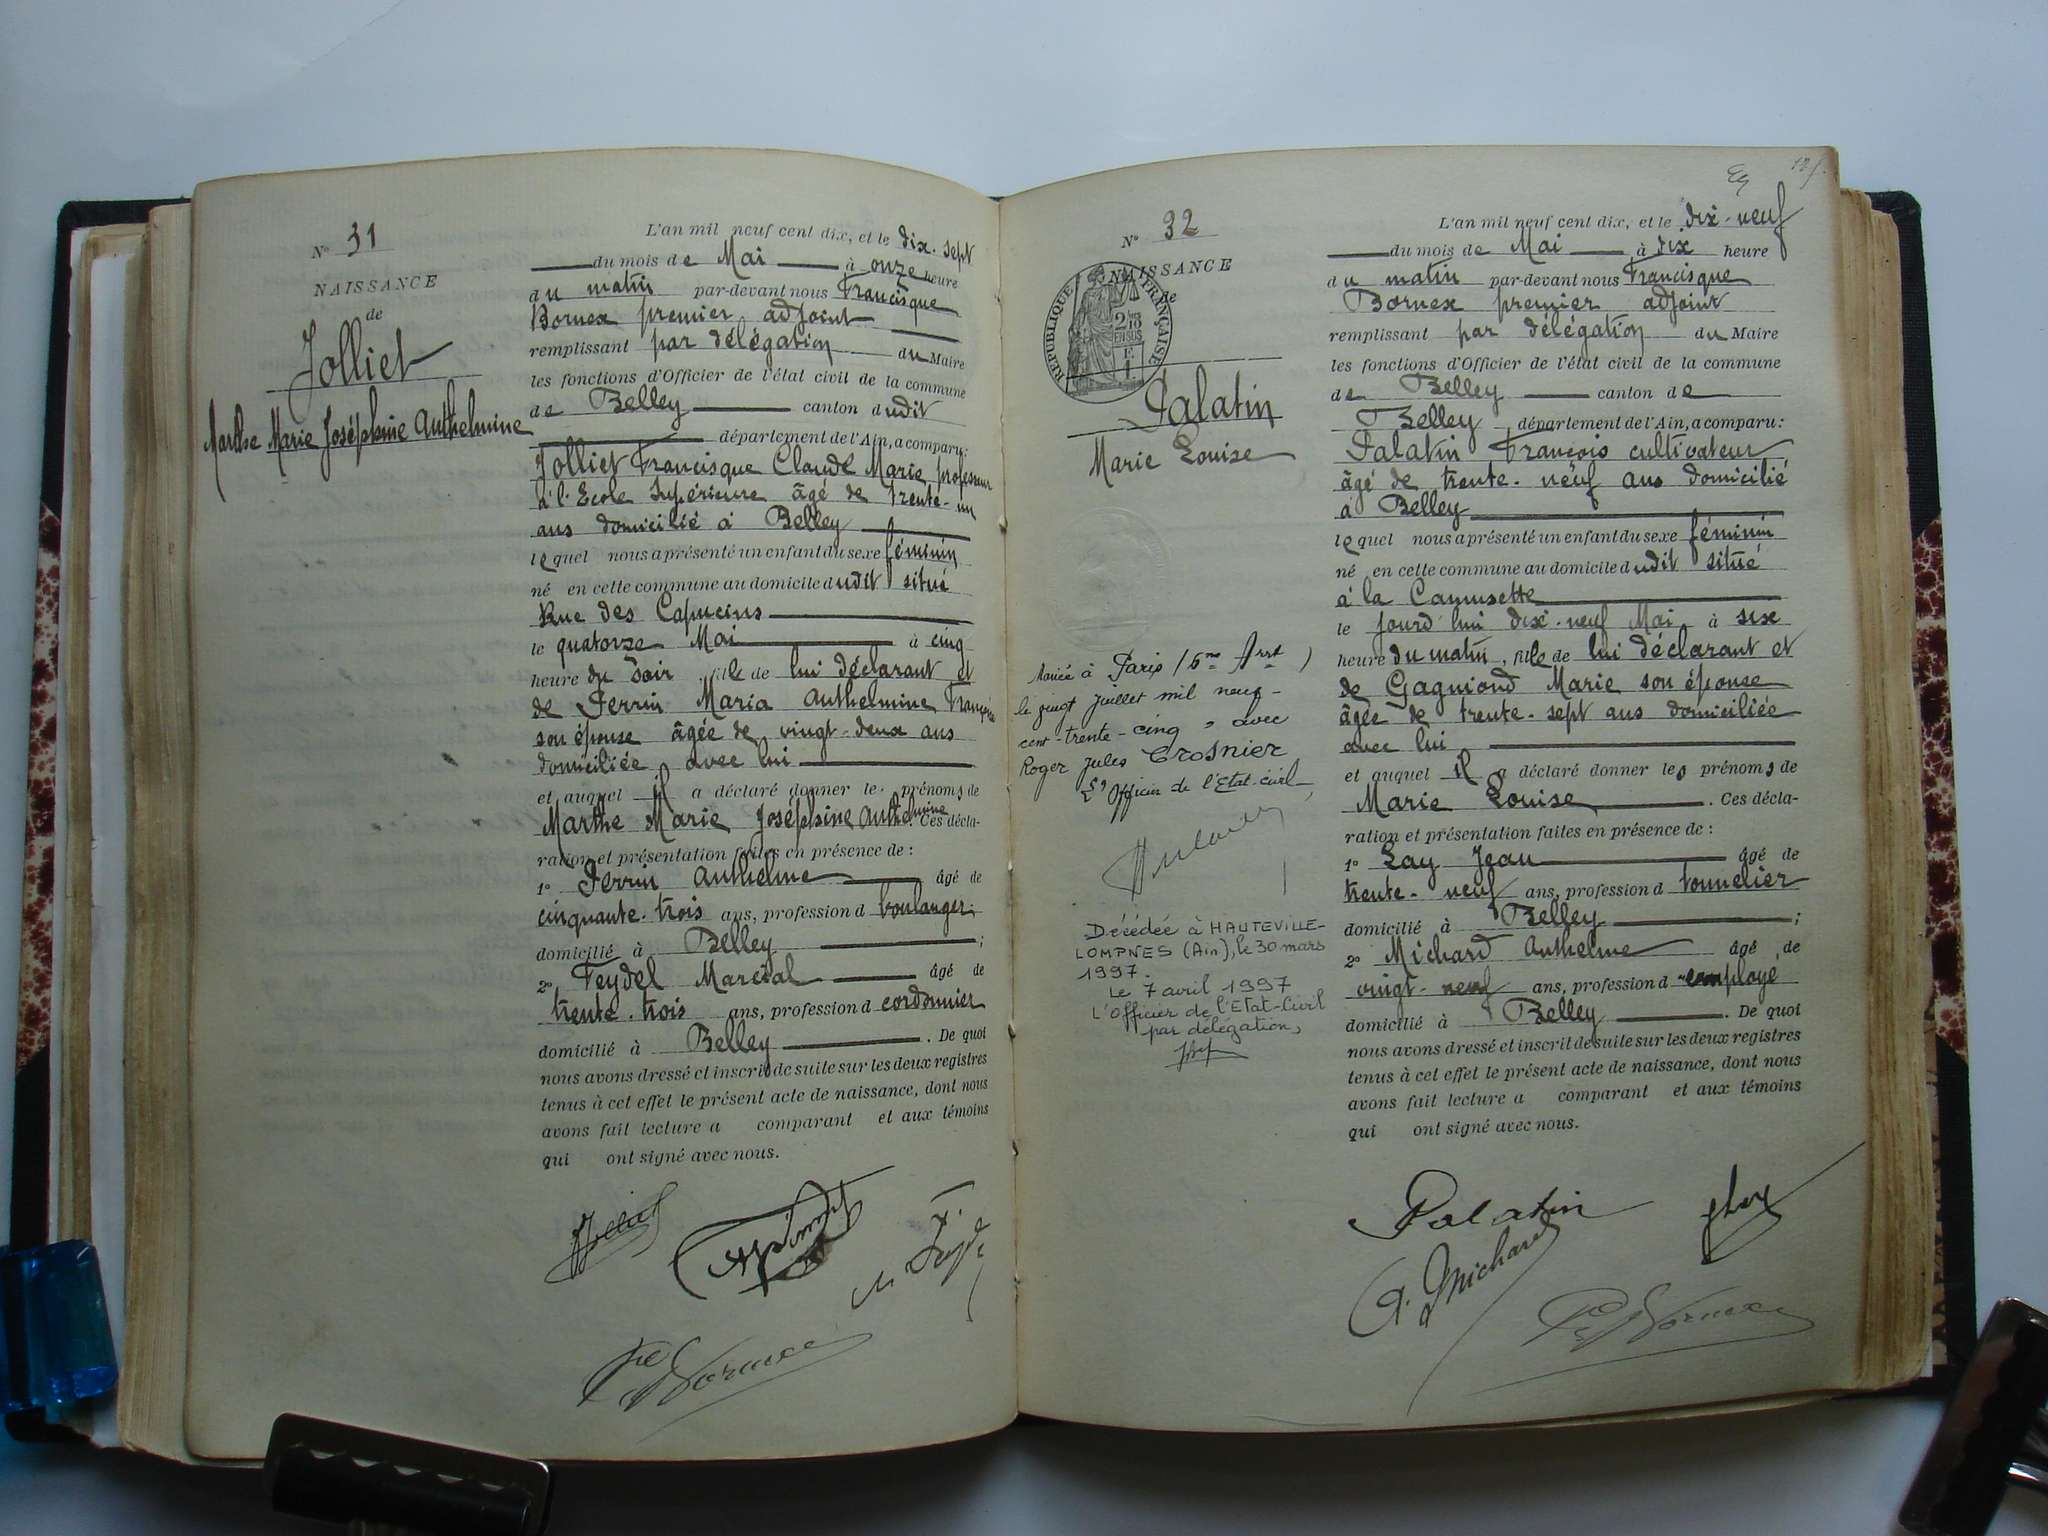 N° 31
NAISSANCE
de
Jolliet
Marthe Marie Joséphine Anthelmine
L'an mil neuf cent dix, et le dix-sept
du mois de Mai à onze heure
du matin par-devant nous Francisque
Bornex premier adjoint
remplissant par délégation du Maire
les fonctions d'Officier de l'état civil de la commune
de Belley canton dudit
département de l'Ain, a comparu:
Jolliet Francisque Claude Marie professeur
à l'Ecole Supérieure âgé de trente-un
ans domicilié à Belley
lequel nous a présenté un enfant du sexe féminin
né en cette commune au domicile dudit situé
Rue des Capucins
le quatorze Mai à cinq
heure du soir, fille de lui déclarant et
de Perrin Maria Anthelmine Françoise
son épouse âgée de vingt-deux ans
domiciliée avec lui
et auquel il a déclaré donner les prénoms de
Marthe Marie Joséphine Anthelmine. Ces décla-
ration et présentation faites en présence de :
1° Perrin Anthelme âgé de
cinquante-trois ans, profession d boulanger
domicilié à Belley ;
2° Feydel Marcial âgé de
trente-trois ans, profession d cordonnier
domicilié à Belley. De quoi
nous avons dressé et inscrit de suite sur les deux registres
tenus à cet effet le présent acte de naissance, dont nous
avons fait lecture a comparant et aux témoins
qui ont signé avec nous.
N° 32
NAISSANCE
de
RÉPUBLIQUE FRANÇAISE
2/10 EN SUS
Palatin
Marie Louise
Mariée à Paris (6me Arrt)
le vingt juillet mil neuf-
cent-trente-cinq, avec
Roger Jules Crosnier
L'Officier de l'Etat-civil
Décédée à HAUTEVILLE-
LOMPNES (Ain), le 30 mars
1997.
Le 7 avril 1997
L'Officier de l'Etat-Civil
par délégation,
L'an mil neuf cent dix, et le dix-neuf
du mois de Mai à dix heure
du matin par-devant nous Francisque
Bornex premier adjoint
remplissant par délégation du Maire
les fonctions d'Officier de l'état civil de la commune
de Belley canton de
Belley département de l'Ain, a comparu:
Palatin François cultivateur
âgé de trente-neuf ans domicilié
à Belley
lequel nous a présenté un enfant du sexe féminin
né en cette commune au domicile dudit situé
à la Camusette
le jourd'hui dix-neuf Mai à six
heure du matin, fille de lui déclarant et
de Gagniond Marie son épouse
âgée de trente-sept ans domiciliée
avec lui
et auquel il a déclaré donner les prénoms de
Marie Louise. Ces décla-
ration et présentation faites en présence de :
1° Lay Jean âgé de
trente-neuf ans, profession d tonnelier
domicilié à Belley ;
2° Michard Anthelme âgé de
vingt-neuf ans, profession d employé
domicilié à Belley. De quoi
nous avons dressé et inscrit de suite sur les deux registres
tenus à cet effet le présent acte de naissance, dont nous
avons fait lecture a comparant et aux témoins
qui ont signé avec nous.
Palatin
A. Michard